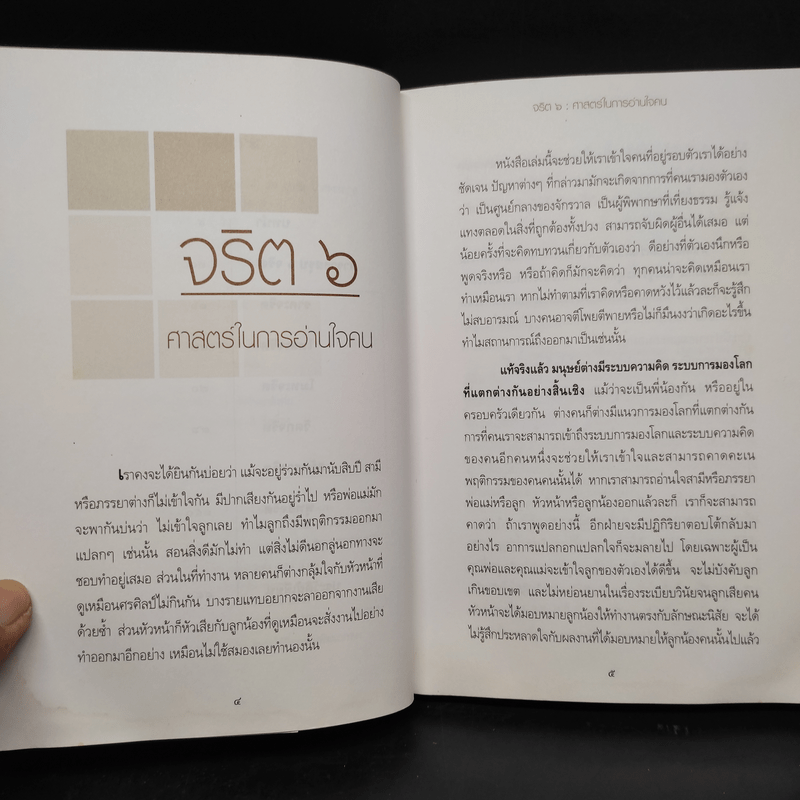 จริต ๖
ศาสตร์ในการอ่านใจคน
เราคงจะได้ยินกันบ่อยว่า แม้จะอยู่ร่วมกันมานับสิบปี สามี
หรือภรรยาต่างก็ไม่เข้าใจกัน มีปากเสียงกันอยู่ร่ำไป หรือพ่อแม่มัก
จะพากันบ่นว่า ไม่เข้าใจลูกเลย ทำไมลูกถึงมีพฤติกรรมออกมา
แปลกๆ เช่นนั้น สอนสิ่งดีมักไม่ทำ แต่สิ่งไม่ดีนอกลู่นอกทางจะ
ชอบทำอยู่เสมอ ส่วนในที่ทำงาน หลายคนก็ต่างกลุ้มใจกับหัวหน้าที่
ดูเหมือนศรศิลป์ไม่กินกัน บางรายแทบอยากจะลาออกจากงานเสีย
ด้วยซ้ำ ส่วนหัวหน้าก็หัวเสียกับลูกน้องที่ดูเหมือนจะสั่งงานไปอย่าง
ทำออกมาอีกอย่าง เหมือนไม่ใช้สมองเลยทำนองนั้น
๔
จริต ๖ : ศาสตร์ในการอ่านใจคน
หนังสือเล่มนี้จะช่วยให้เราเข้าใจคนที่อยู่รอบตัวเราได้อย่าง
ชัดเจน ปัญหาต่างๆ ที่กล่าวมามักจะเกิดจากการที่คนเรามองตัวเอง
ว่า เป็นศูนย์กลางของจักรวาล เป็นผู้พิพากษาที่เที่ยงธรรม รู้แจ้ง
แทงตลอดในสิ่งที่ถูกต้องทั้งปวง สามารถจับผิดผู้อื่นได้เสมอ แต่
น้อยครั้งที่จะคิดทบทวนเกี่ยวกับตัวเองว่า ดีอย่างที่ตัวเองนึกหรือ
พูดจริงหรือ หรือถ้าคิดก็มักจะคิดว่า ทุกคนน่าจะคิดเหมือนเรา
ทำเหมือนเรา หากไม่ทำตามที่เราคิดหรือคาดหวังไว้แล้วละก็จะรู้สึก
ไม่สบอารมณ์ บางคนอาจตีโพยตีพายหรือไม่ก็มึนงงว่าเกิดอะไรขึ้น
ทำไมสถานการณ์ถึงออกมาเป็นเช่นนั้น
แท้จริงแล้ว มนุษย์ต่างมีระบบความคิด ระบบการมองโลก
ที่แตกต่างกันอย่างสิ้นเชิง แม้ว่าจะเป็นพี่น้องกัน หรืออยู่ใน
ครอบครัวเดียวกัน ต่างคนก็ต่างมีแนวการมองโลกที่แตกต่างกัน
การที่คนเราจะสามารถเข้าถึงระบบการมองโลกและระบบความคิด
ของคนอีกคนหนึ่งจะช่วยให้เราเข้าใจและสามารถคาดคะเน
พฤติกรรมของคนคนนั้นได้ หากเราสามารถอ่านใจสามีหรือภรรยา
พ่อแม่หรือลูก หัวหน้าหรือลูกน้องออกแล้วละก็ เราก็จะสามารถ
คาดว่า ถ้าเราพูดอย่างนี้ อีกฝ่ายจะมีปฏิกิริยาตอบโต้กลับมา
อย่างไร อาการแปลกอกแปลกใจก็จะมลายไป โดยเฉพาะผู้เป็น
คุณพ่อและคุณแม่จะเข้าใจลูกของตัวเองได้ดีขึ้น จะไม่บังคับลูก
เกินขอบเขต และไม่หย่อนยานในเรื่องระเบียบวินัยจนลูกเสียคน
หัวหน้าจะได้มอบหมายลูกน้องให้ทำงานตรงกับลักษณะนิสัย จะได้
ไม่รู้สึกประหลาดใจกับผลงานที่ได้มอบหมายให้ลูกน้องคนนั้นไปแล้ว
๕